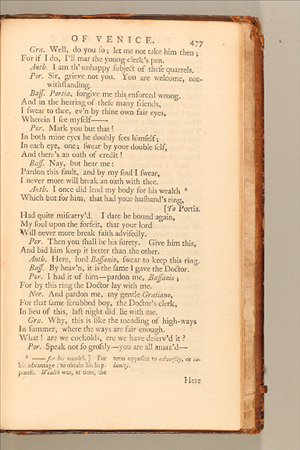 OF VENICE. 477
Gra. Well, do you ſo; let me not take him then;
For if I do, I'll mar the young clerk's pen.
Anth. I am th' unhappy ſubject of theſe quarrels.
Por. Sir, grieve not you. You are welcome, not-
withſtanding.
Baſſ. Portia, forgive me this enforced wrong.
And in the hearing of theſe many friends,
I ſwear to thee, ev'n by thine own fair eyes,
Wherein I ſee myſelf——
Por. Mark you but that!
In both mine eyes he doubly ſees himſelf;
In each eye, one; ſwear by your double ſelf,
And there's an oath of credit!
Baſſ. Nay, but hear me:
Pardon this fault, and by my ſoul I ſwear,
I never more will break an oath with thee.
Anth. I once did lend my body for his wealth *
Which but for him, that had your huſband's ring,
[To Portia.
Had quite miſcarry'd. I dare be bound again,
My ſoul upon the forfeit, that your lord
Will never more break faith adviſedly.
Por. Then you ſhall be his ſurety. Give him this,
And bid him keep it better than the other.
Anth. Here, lord Baſſanio, ſwear to keep this ring.
Baſſ. By heav'n, it is the ſame I gave the Doctor.
Por. I had it of him—pardon me, Baſſanio;
For by this ring the Doctor lay with me.
Ner. And pardon me, my gentle Gratiano,
For that ſame ſcrubbed boy, the Doctor's clerk,
In lieu of this, laſt night did lie with me.
Gra. Why, this is like the mending of high-ways
In ſummer, where the ways are fair enough.
What! are we cuckolds, ere we have deſerv'd it?
Por. Speak not ſo groſſly—you are all amaz'd—
* —— for his wealth.] For
his advantage: to obtain his hap-
pineſs. Wealth was, at that time, the
term oppoſite to adverſity, or ca-
lamity.
Here